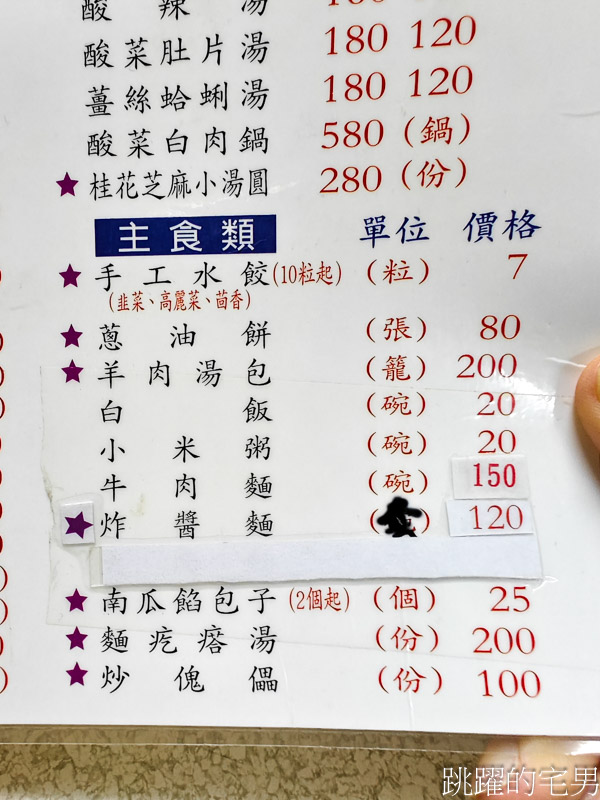 酸辣湯
酸菜肚片湯 180 120
薑絲蛤蜊湯 180 120
酸菜白肉鍋 580（鍋）
★桂花芝麻小湯圓 280（份）
主食類 單位 價格
★手工水餃(10粒起)（粒） 7
(韭菜、高麗菜、茴香)
★蔥油餅（張） 80
★羊肉湯包（籠） 200
白飯（碗） 20
小米粥（碗） 20
牛肉麵（碗） 150
★炸醬麵 120
★南瓜餡包子(2個起)（個） 25
★麵疙瘩湯（份） 200
★炒傀儡（份） 100
跳躍的宅男